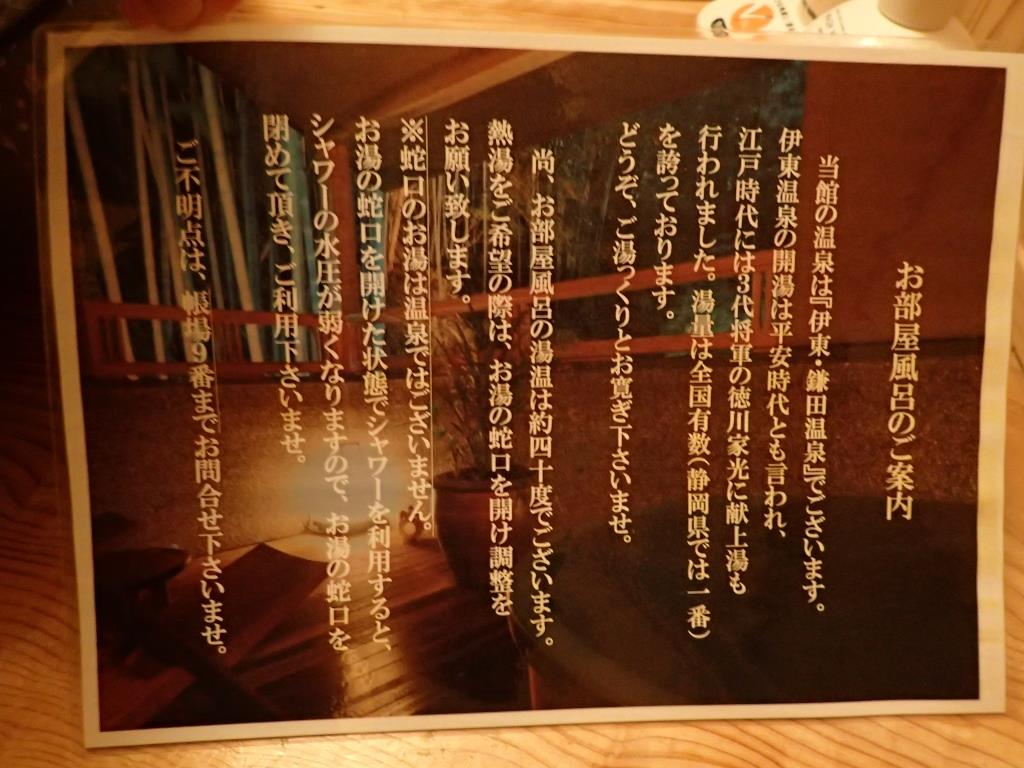 お部屋風呂のご案内
当館の温泉は『伊東・鎌田温泉』でございます。
伊東温泉の開湯は平安時代とも言われ、
江戸時代には3代将軍の徳川家光に献上湯も
行われました。湯量は全国有数(静岡県では一番)
を誇っております。
どうぞ、ご湯っくりとお寛ぎ下さいませ。
尚、お部屋風呂の湯温は約四十度でございます。
熱湯をご希望の際は、お湯の蛇口を開け調整を
お願い致します。
※蛇口のお湯は温泉ではございません。
お湯の蛇口を開けた状態でシャワーを利用すると、
シャワーの水圧が弱くなりますので、お湯の蛇口を
閉めて頂き、ご利用下さいませ。
ご不明点は、帳場9番までお問合せ下さいませ。